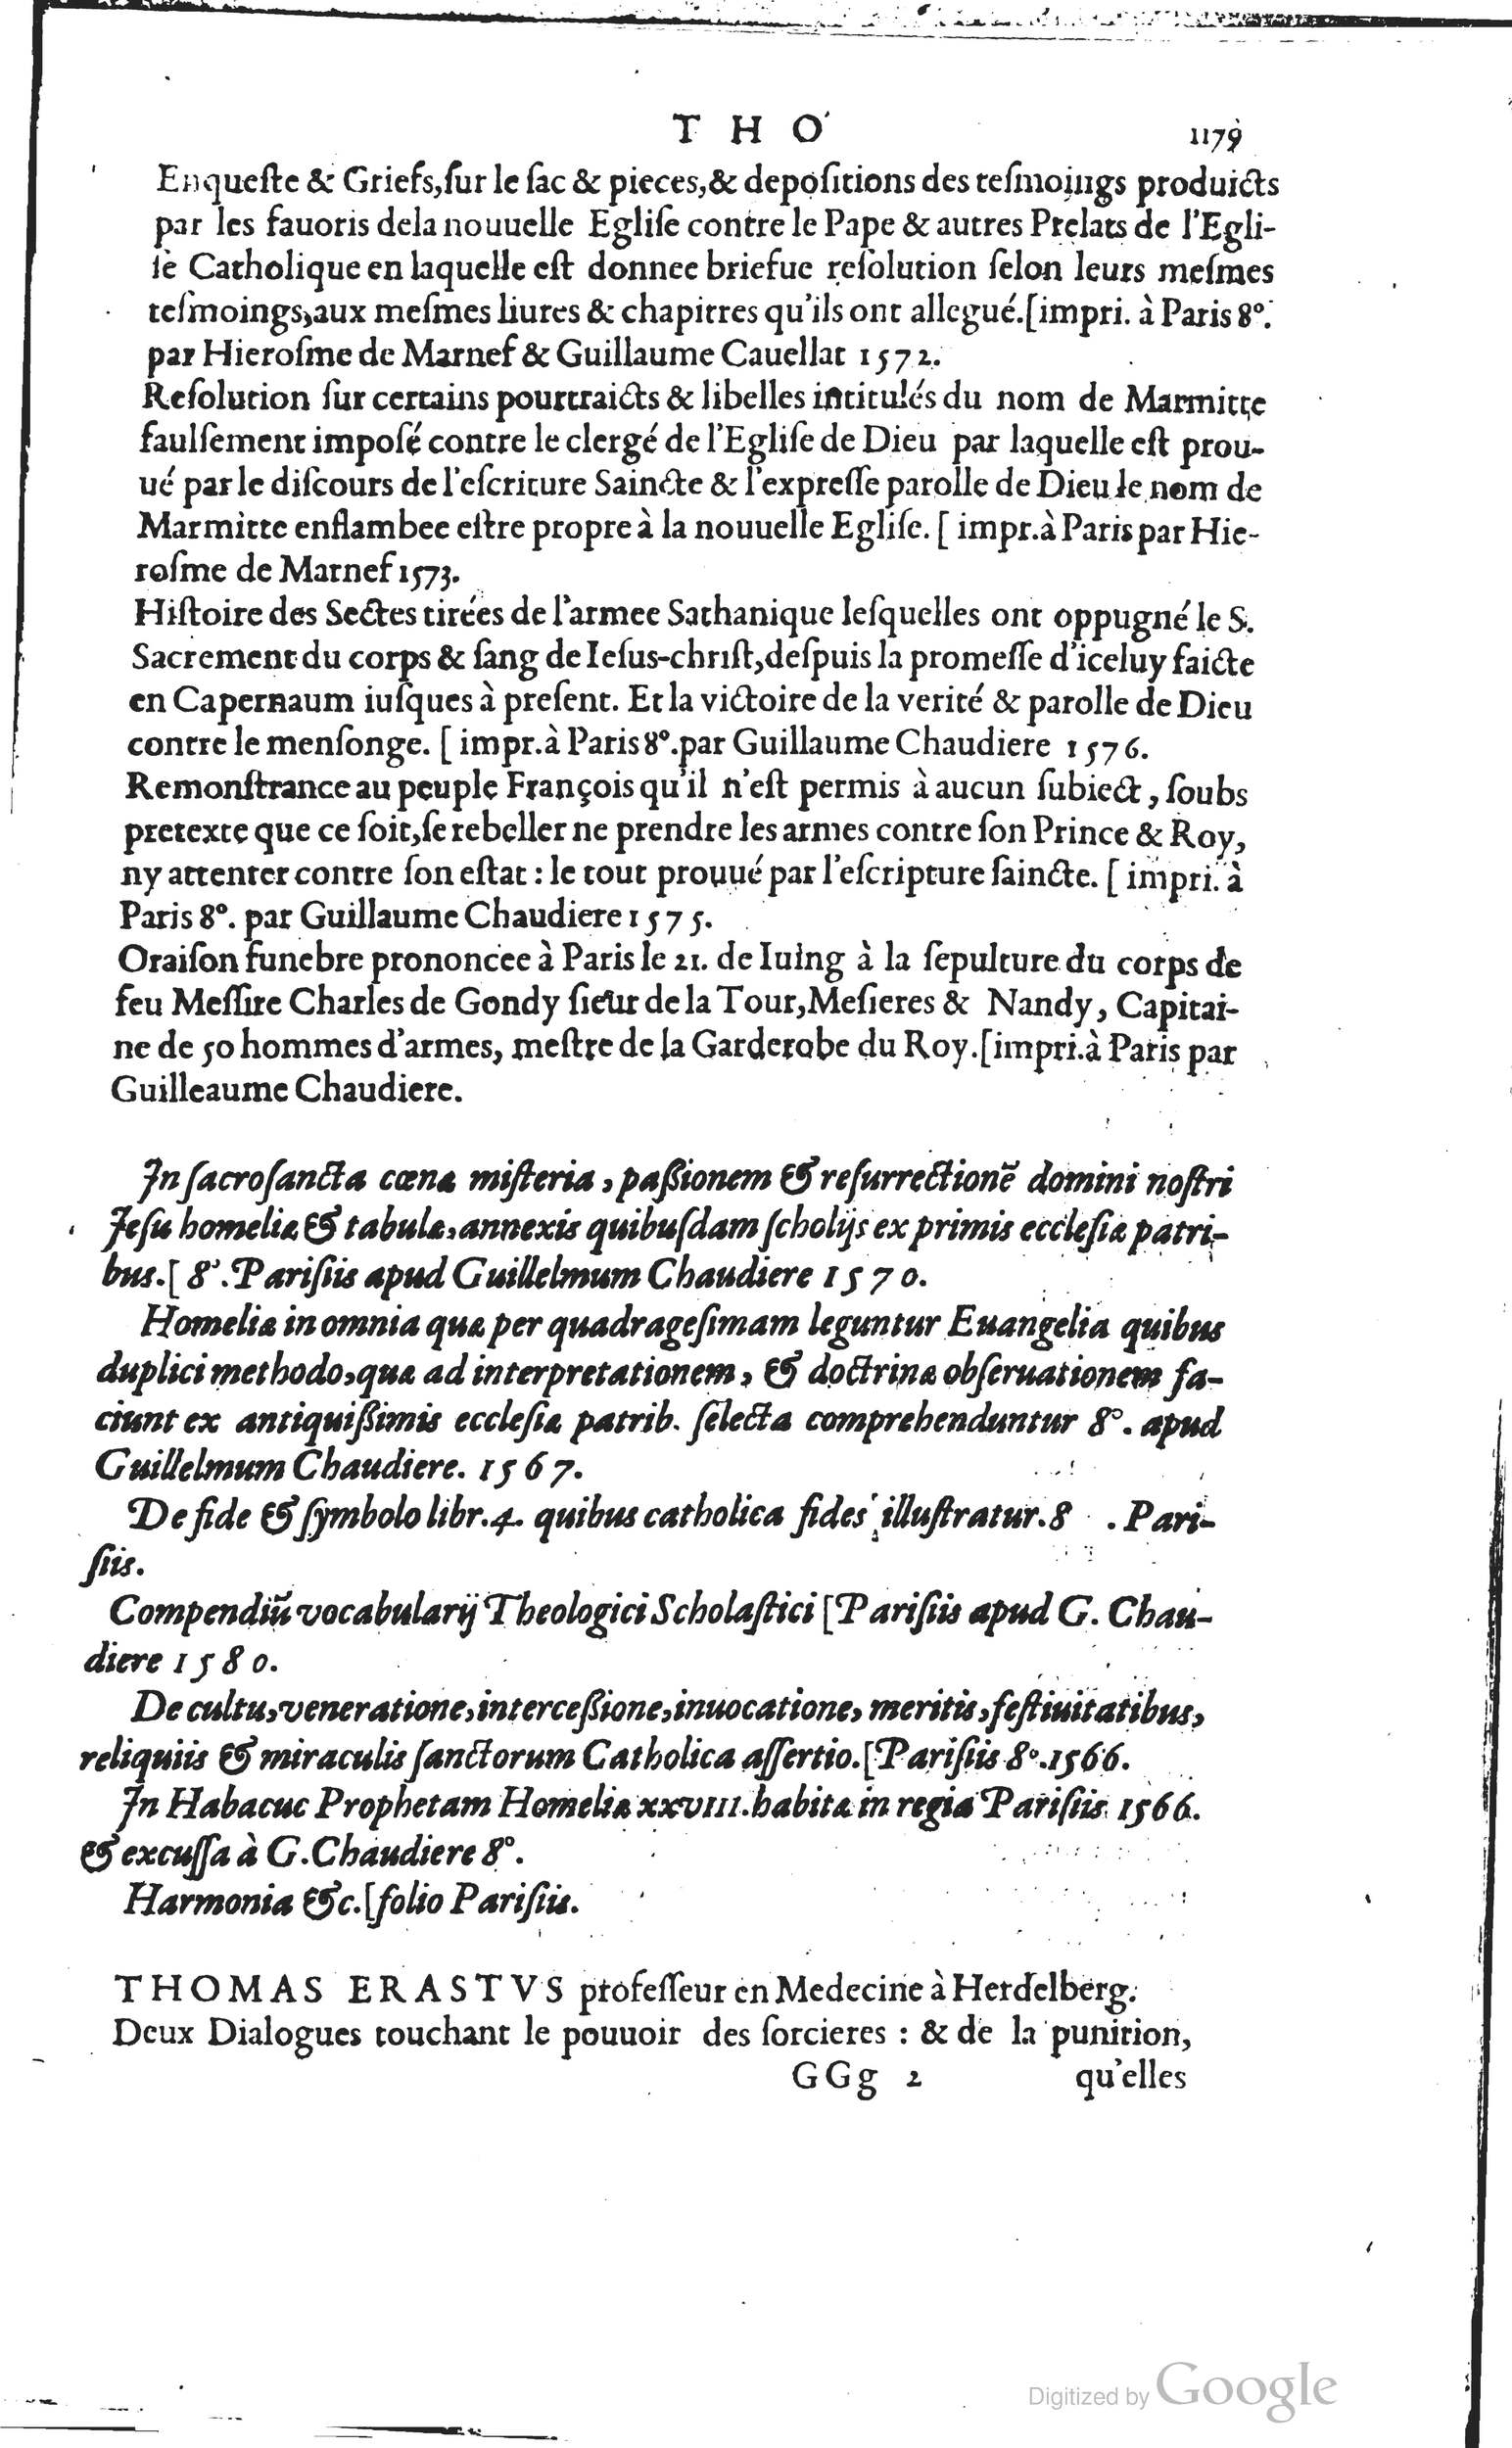 T H O
1179
Enqueſte & Griefs,ſur le ſac & pieces,& depoſitions des teſmoings produicts
par les fauoris dela nouuelle Egliſe contre le Pape & autres Prelats de l'Egli-
ſe Catholique en laquelle eſt donnee briefue reſolution ſelon leurs meſmes
teſmoings,aux meſmes liures & chapitres qu'ils ont allegué.[impri. à Paris 8°.
par Hieroſme de Marnef & Guillaume Cauellat 1572.
Reſolution ſur certains pourtraicts & libelles intitulés du nom de Marmitte
faulſement impoſé contre le clergé de l'Egliſe de Dieu par laquelle eſt prou-
ué par le diſcours de l'eſcriture Saincte & l'expreſſe parolle de Dieu le nom de
Marmitte enflambee eſtre propre à la nouuelle Egliſe. [ impr.à Paris par Hie-
roſme de Marnef 1573.
Hiſtoire des Sectes tirées de l'armee Sathanique leſquelles ont oppugné le S.
Sacrement du corps & ſang de Ieſus-chriſt,deſpuis la promeſſe d'iceluy faicte
en Capernaum iuſques à preſent. Et la victoire de la verité & parolle de Dieu
contre le menſonge. [ impr.à Paris 8°.par Guillaume Chaudiere 1576.
Remonſtrance au peuple François qu'il n'eſt permis à aucun ſubiect , ſoubs
pretexte que ce ſoit,ſe rebeller ne prendre les armes contre ſon Prince & Roy,
ny attenter contre ſon eſtat : le tout prouué par l'eſcripture ſaincte. [ impri. à
Paris 8°. par Guillaume Chaudiere 1575.
Oraiſon funebre prononcee à Paris le 21. de Iuing à la ſepulture du corps de
feu Meſſire Charles de Gondy ſieur de la Tour,Meſieres & Nandy, Capitai-
ne de 50 hommes d'armes, meſtre de la Garderobe du Roy.[impri.à Paris par
Guilleaume Chaudiere.
In ſacroſancta cœnæ miſteria , paßionem & reſurrectionẽ domini noſtri
Jeſu homeliæ & tabulæ,annexis quibuſdam ſcholijs ex primis eccleſiæ patri-
bus.[ 8°.Pariſiis apud Guillelmum Chaudiere 1570.
Homeliæ in omnia quæ per quadrageſimam leguntur Euangelia quibus
duplici methodo,quæ ad interpretationem, & doctrinæ obſeruationem fa-
ciunt ex antiquißimis eccleſiæ patrib. ſelecta comprehenduntur 8°. apud
Guillelmum Chaudiere. 1567.
De fide & ſymbolo libr.4. quibus catholica fides illuſtratur.8 . Pari-
ſiis.
Compendiũ vocabularij Theologici Scholaſtici [Pariſiis apud G. Chau-
diere 1580.
De cultu,veneratione,interceßione,inuocatione, meritis,feſtiuitatibus,
reliquiis & miraculis ſanctorum Catholica aſſertio.[Pariſiis 8°.1566.
In Habacuc Prophetam Homeliæ xxvııı.habitæ in regia Pariſiis 1566.
& excuſſa à G.Chaudiere 8°.
Harmonia &c.[folio Pariſiis.
THOMAS ERASTVS profeſſeur en Medecine à Herdelberg.
Deux Dialogues touchant le pouuoir des ſorcieres : & de la punition,
GGg 2
qu'elles
Digitized by Google